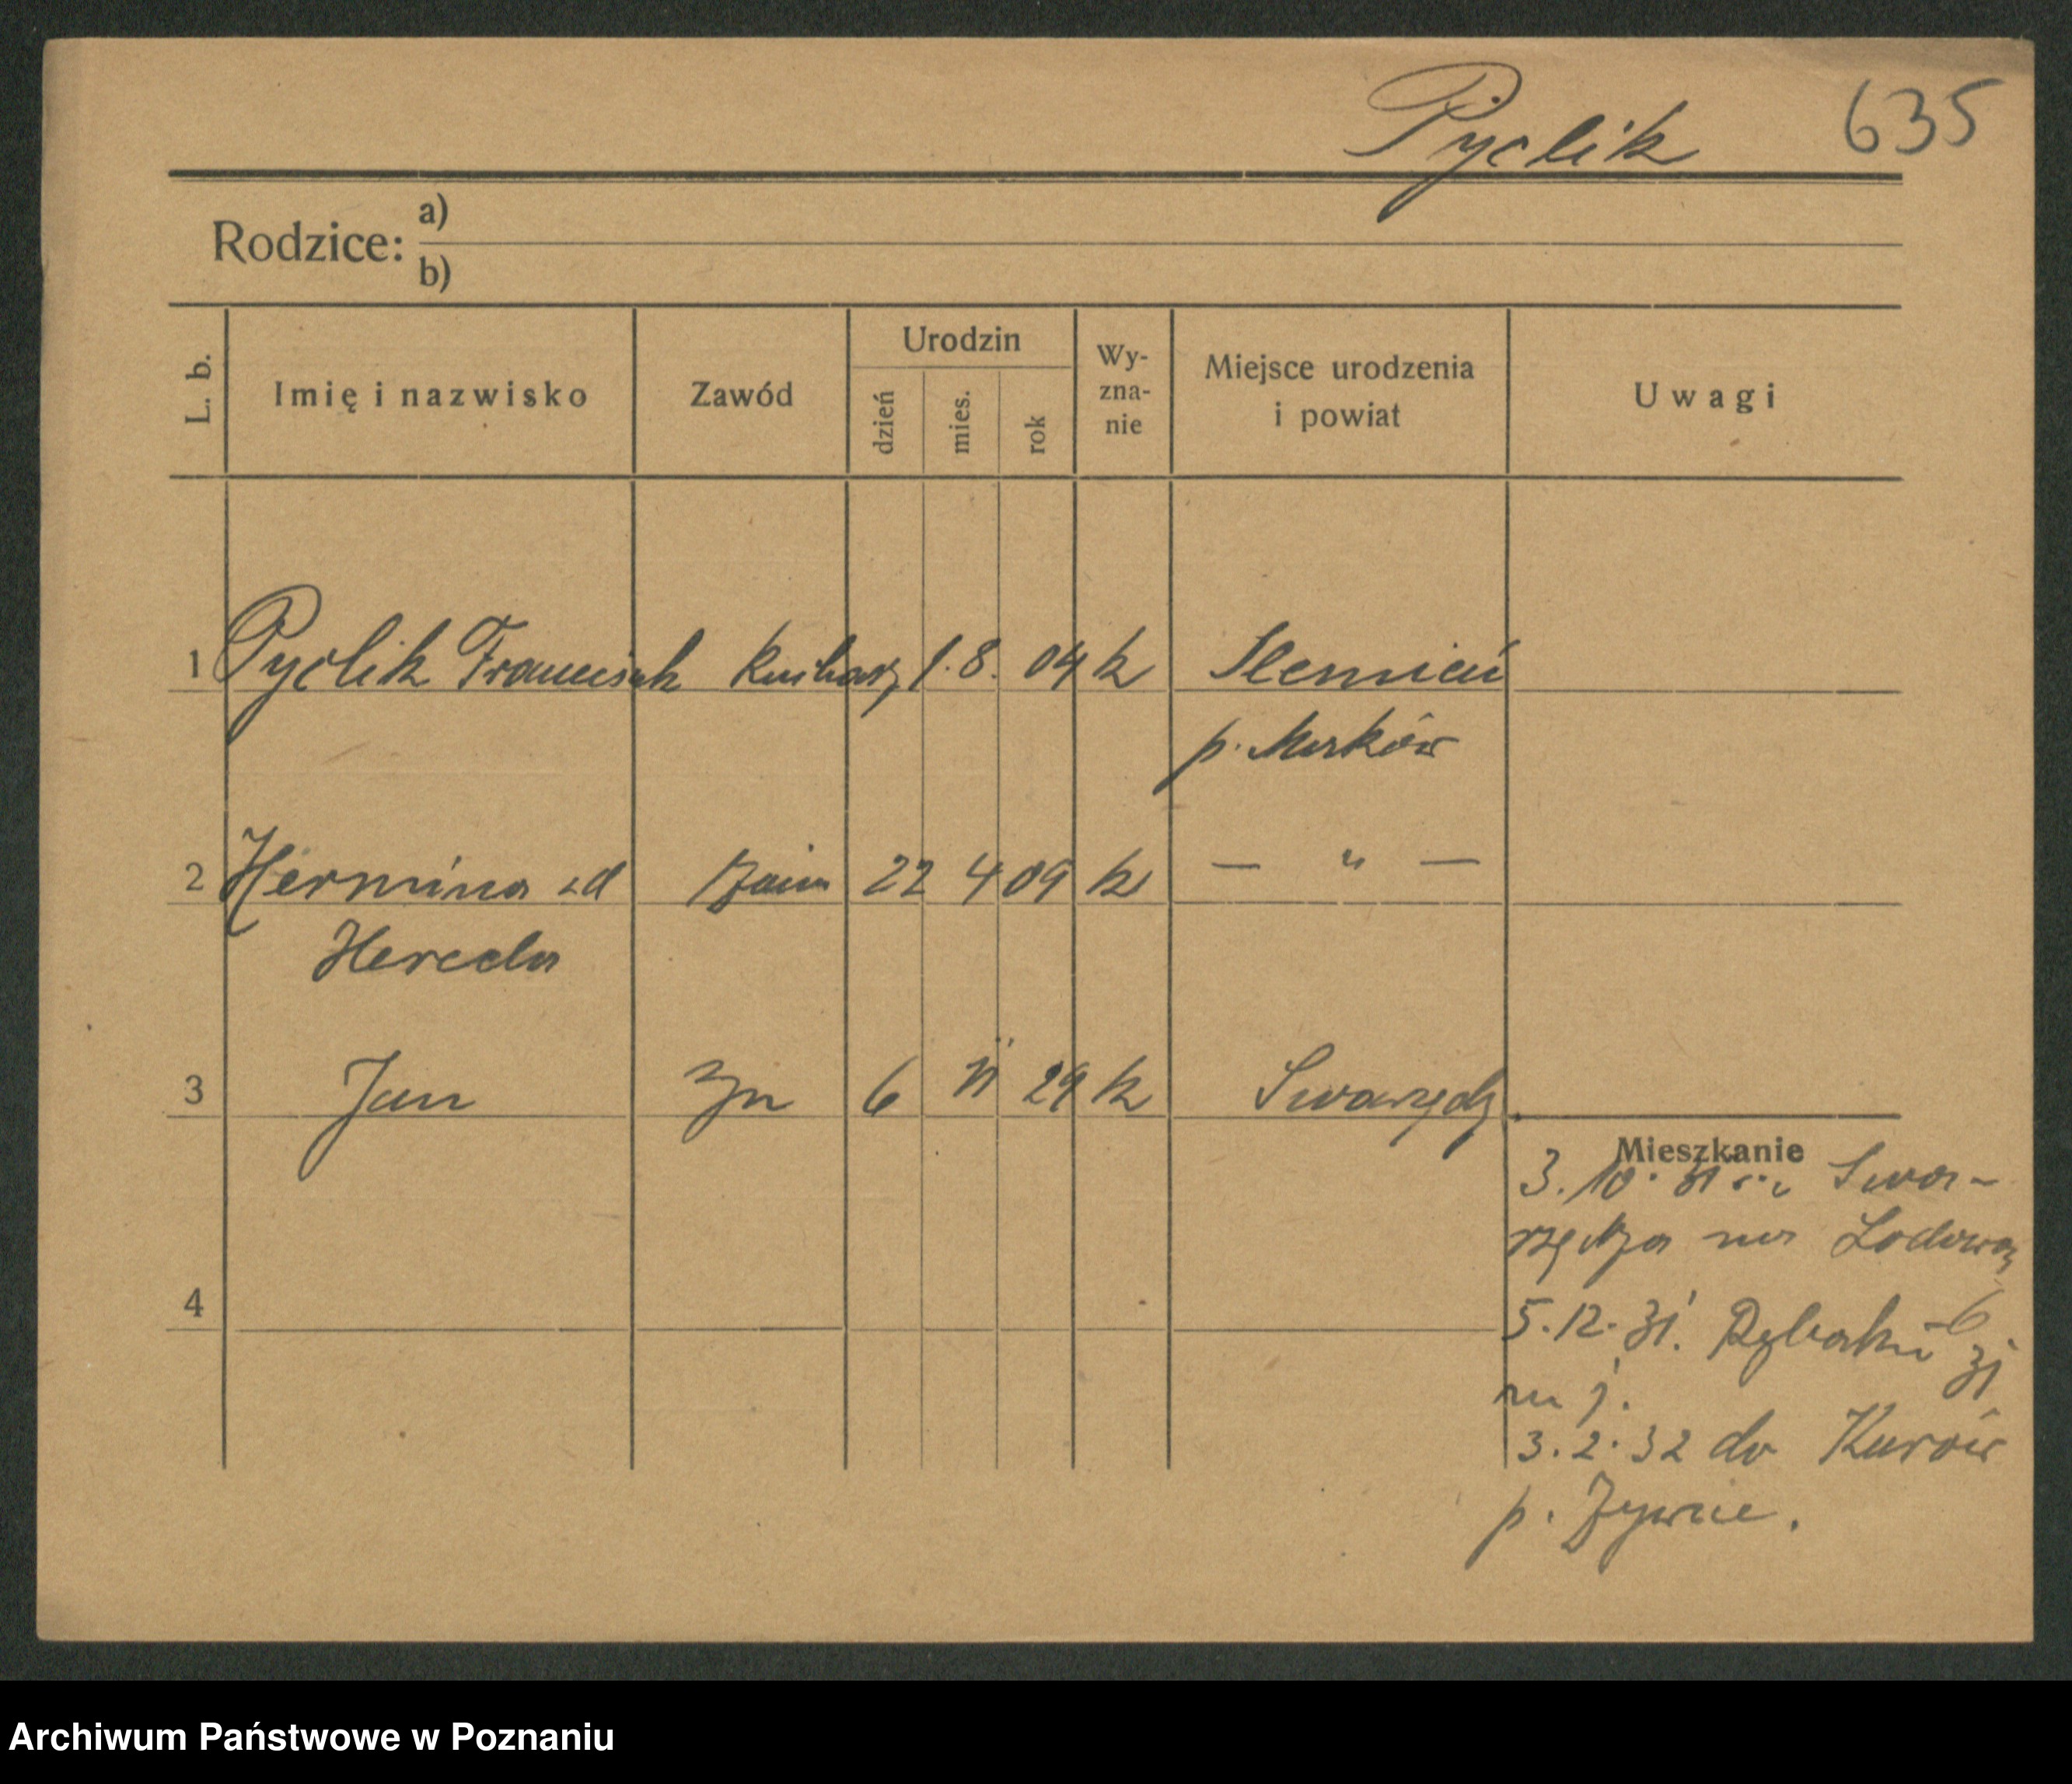 Pyclik 635
Rodzice: a)
b)
L. b. Imię i nazwisko Zawód Urodzin dzień mies. rok Wy-zna-nie Miejsce urodzenia i powiat Uwagi
1 Pyclik Franciszek kucharz 1. 8. 04 k Ślemień
p.
2 Hermina zd 22 4 09 k — " —
3 Jan syn 6 29 k Swarzędz.
4
Mieszkanie
3. 10. 31 Swa-
rzędza na Lodową
5. 12. 31. Rybaki
3. 2. 32 do Kurów
p. Żywiec.
Archiwum Państwowe w Poznaniu